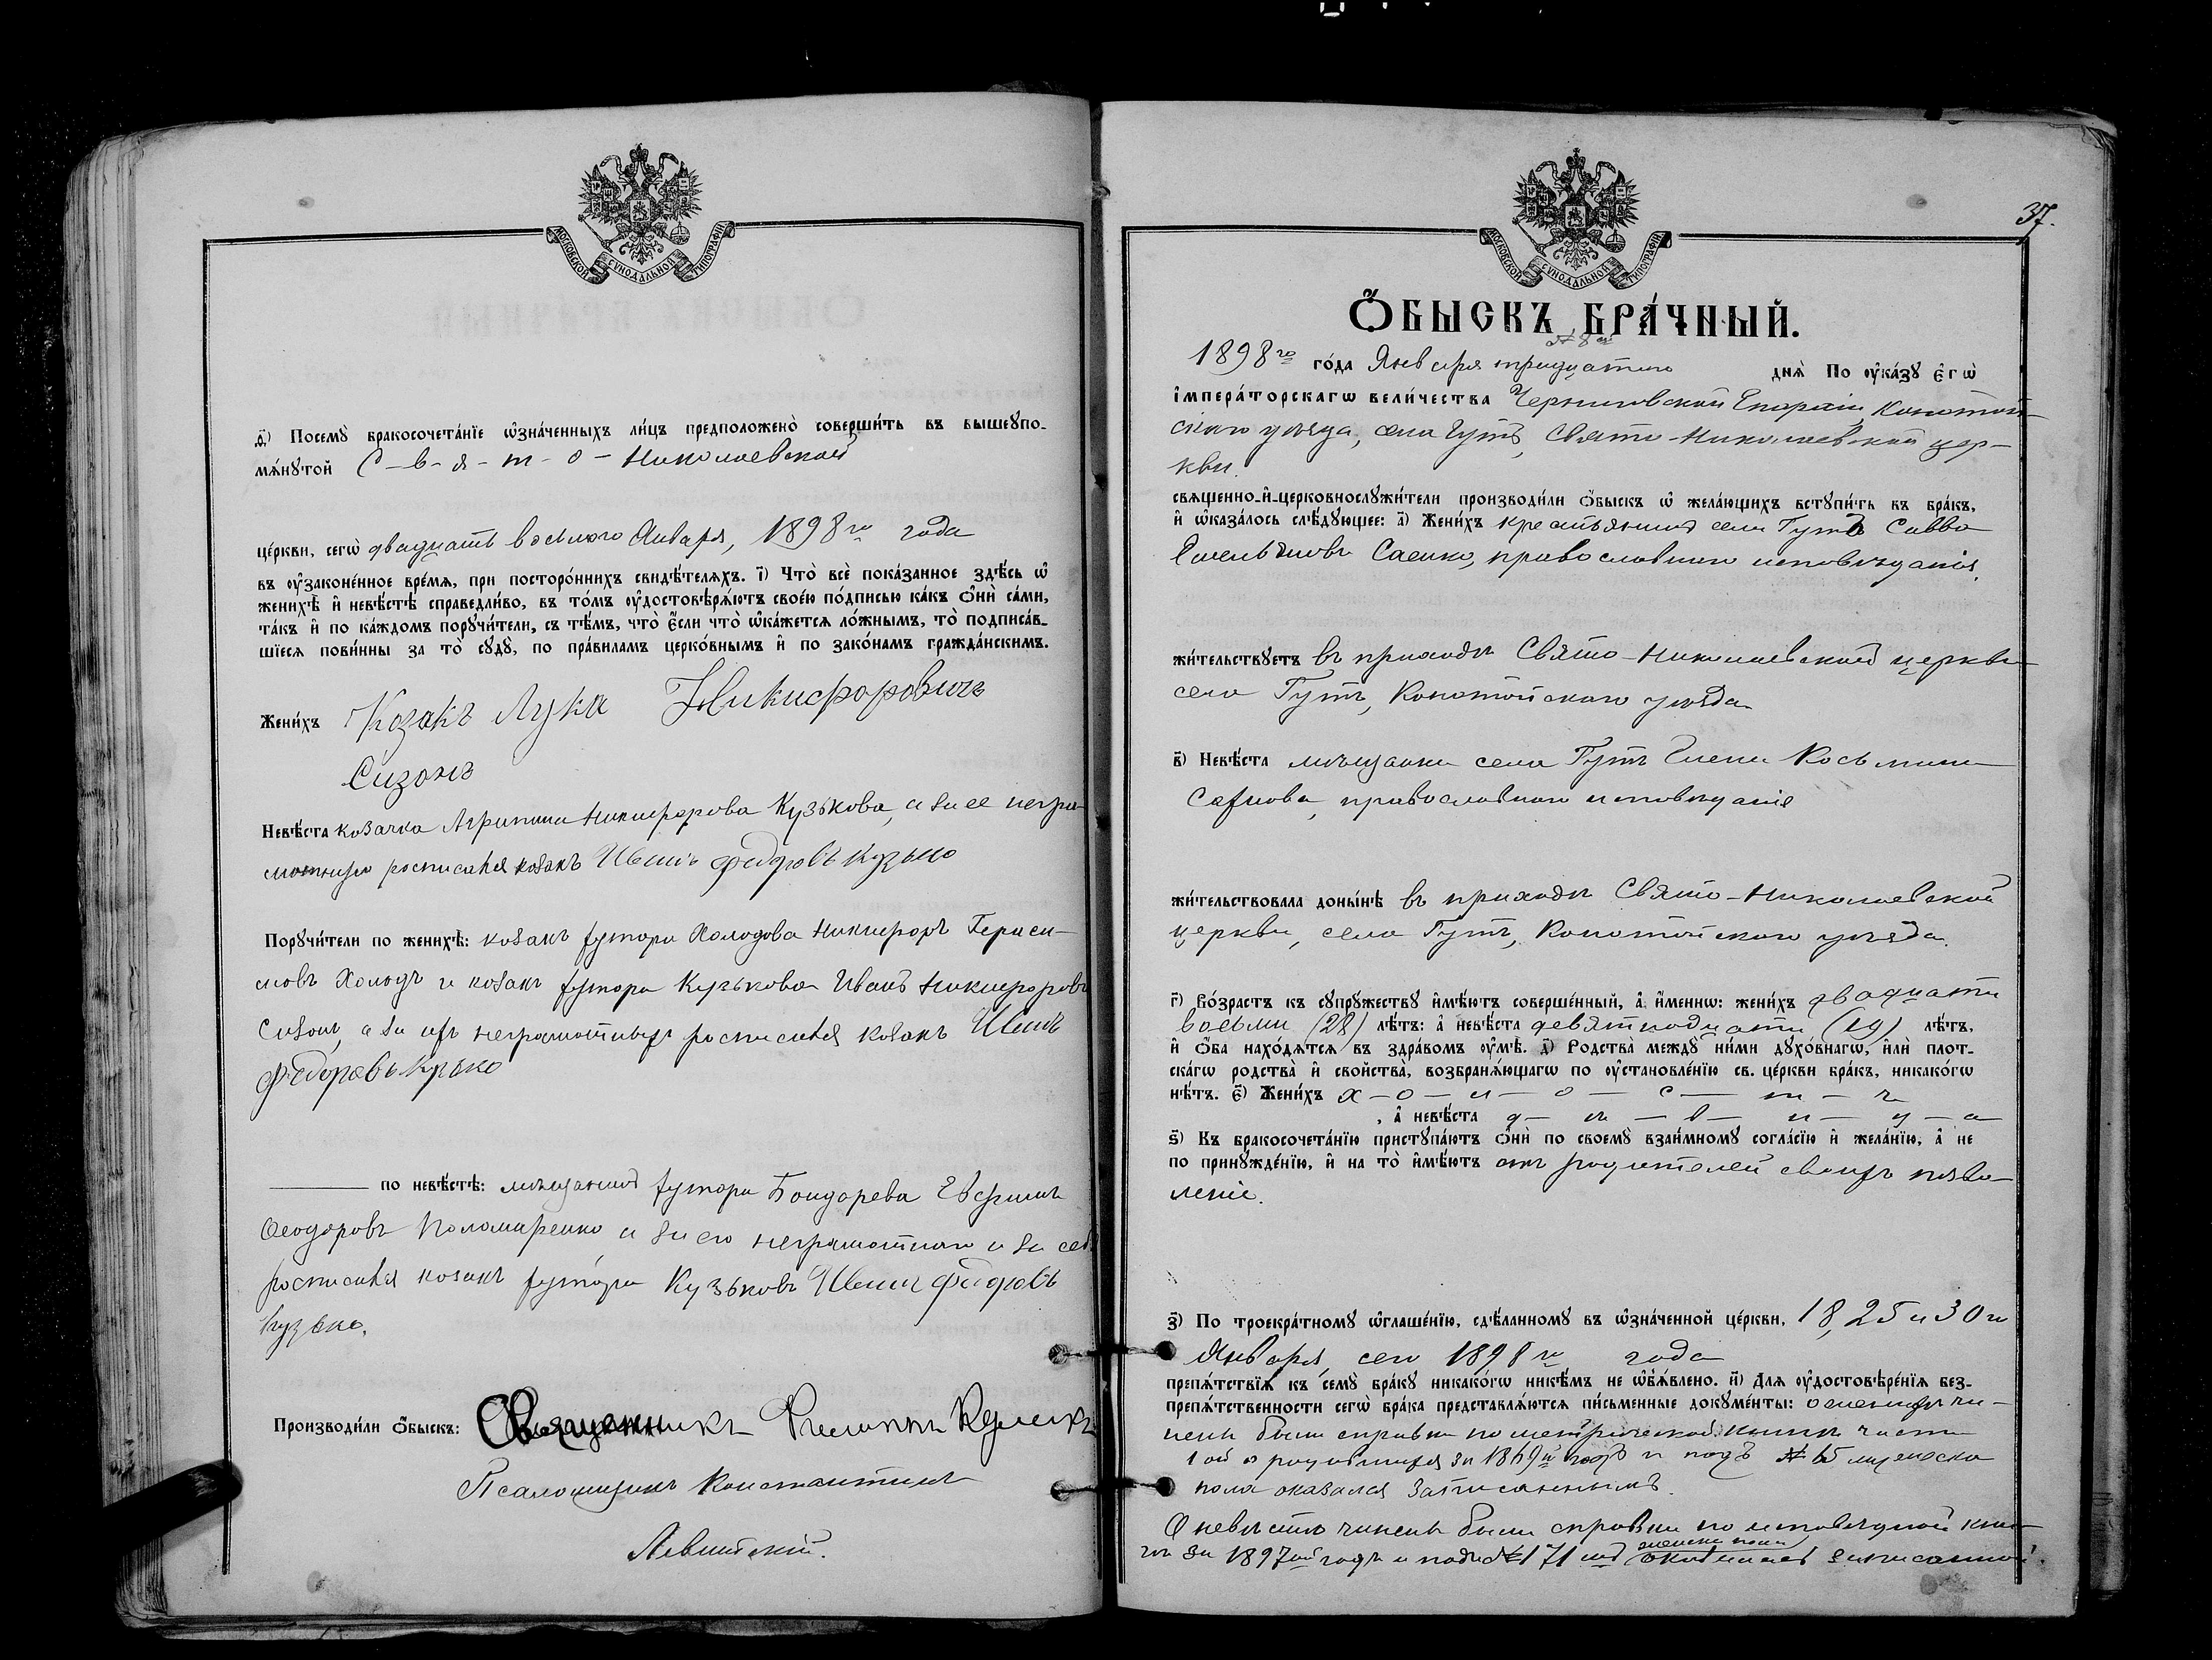 МОСКОВСКОЙ СѴНОДАЛЬНОЙ ТИПОГРАФІИ
д҃і) Посемꙋ̀ бракосочета́нїе ѡ҆зна́ченныхъ ли́цъ предположено̀ соверши́ть въ вышеꙋпо-
мѧ́нꙋтой С-в-я-т-о-Николаевской
це́ркви, сегѡ̀ двадцать восьмого Января, 1898го года
въ ᲂу҆зако́ненное вре́мѧ, при посторо́ннихъ свидѣ́телѧхъ. і҃) Что̀ всѐ пока́занное здѣ́сь ѡ҆
женихѣ̀ и҆ невѣ́стѣ справедли́во, въ то́мъ ᲂу҆достовѣрѧ́ютъ свое́ю по́дписью ка́къ ѻ҆нѝ са́ми,
та́къ и҆ по ка́ждомъ порꙋчи́тели, съ тѣ́мъ, что̀ є҆́сли что̀ ѡ҆ка́жетсѧ ло́жнымъ, то̀ подписа́в-
шїесѧ пови́нны за то̀ сꙋдꙋ̀, по пра́виламъ церко́внымъ и҆ по зако́намъ гражда́нскимъ.
Жени́хъ Козакъ Лука Никифоровичъ
Сизонъ
Невѣ́ста козачка Агрипина Никифорова Кузькова, а за ее негра-
мотную росписался козакъ Иванъ Федоровъ Кузько
Порꙋчи́тели по женихѣ̀: козакъ хутора Холодова Никифоръ Гераси-
мовъ Холодъ и козакъ хутора Кузькова Иванъ Никифоровъ
Сизонъ, а за ихъ неграмотныхъ росписался козакъ Иванъ
Федоровъ Кузько
по невѣ́стѣ: мѣщанинъ хутора Бондарева Евфимъ
Ѳеодоровъ Паломаренко а за его неграмотного и за себя
росписался козакъ хутора Кузьковъ Иванъ Федоровъ
Кузько.
Производи́ли ѻ҆́быскъ: Священникъ
Псаломщикъ Константинъ
Левитскій.
37.
МОСКОВСКОЙ СѴНОДАЛЬНОЙ ТИПОГРАФІИ
Ѻ҆́БЫСКЪ БРА́ЧНЫЙ.
1898го го́да Января тридцатого днѧ̀ По ᲂу҆ка́зꙋ є҆гѡ̀
і҆мпера́торскагѡ вели́чества Черниговской Епархіи, Конотоп-
скаго уѣзда, села Гутъ, Свято-Николаевской цер-
кви.
свѧщенно-и҆-церковнослꙋжи́тели производи́ли ѻ҆́быскъ ѡ҆ жела́ющихъ встꙋпи́ть въ бра́къ,
и҆ ѡ҆каза́лось слѣ́дꙋющее: а҃) Жени́хъ крестьянинъ села Гутъ Савва
Емельяновъ Саенко, православного исповѣданія,
жи́тельствꙋетъ въ приходѣ Свято-Николаевской церкви
села Гутъ, Конотопскаго уѣзда
в҃) Невѣ́ста мѣщанка села Гутъ Елена Косьмина
православного исповѣданія
жи́тельствовала доны́нѣ въ приходѣ Свято-Николаевской
церкви, села Гутъ, Конотопскаго уѣзда.
г҃) Во́зрастъ къ сꙋпрꙋ́жествꙋ и҆мѣ́ютъ соверше́нный, а҆ и҆́менню: жени́хъ двадцати
восьми (28) лѣ́тъ: а҆ невѣ́ста девятнадцати (19) лѣ́тъ,
и҆ ѻ҆́ба нахо́дѧтсѧ въ здра́вомъ ᲂу҆мѣ̀. д҃) Родства̀ междꙋ̀ ни́ми дꙋхо́внагѡ, и҆лѝ плот-
ска́гѡ родства̀ и҆ сво́йства, возбранѧ́ющагѡ по ᲂу҆становле́нїю св. це́ркви бра́къ, никако́гѡ
нѣ́тъ. є҃) Жени́хъ х-о-л-о-с-т-ъ
, а҆ невѣ́ста д-ѣ-в-и-ц-а
ѕ҃) Къ бракосочета́нїю пристꙋпа́ютъ ѻ҆нѝ по своемꙋ̀ взаи́мномꙋ согла́сїю и҆ жела́нїю, а҆ не
по принꙋжде́нїю, и҆ на то̀ и҆мѣ́ютъ отъ родителей своихъ позво-
леніе.
з҃) По троекра́тномꙋ ѡ҆глаше́нїю, сдѣ́ланномꙋ въ ѡ҆зна́ченной це́ркви, 18, 25 и 30го
Января, сего 1898го года
препѧ́тствїѧ къ семꙋ̀ бра́кꙋ никако́гѡ никѣ́мъ не ѡ҆б̾ѧ́влено. и҃) Длѧ ᲂу҆достовѣре́нїѧ без-
препѧ́тственности сегѡ̀ бра́ка представлѧ́ютсѧ пи́сьменные докꙋме́нты: о женихѣ чи-
нены были справки по метрической книгѣ части
1ой о родившихся за 1869й годъ и подъ № мужеска
пола оказался записаннымъ.
О невѣстѣ чинены были справки по исповѣдной кни-
гѣ за 1897ой годъ и подъ № 171 женска пола оказалась записанной.